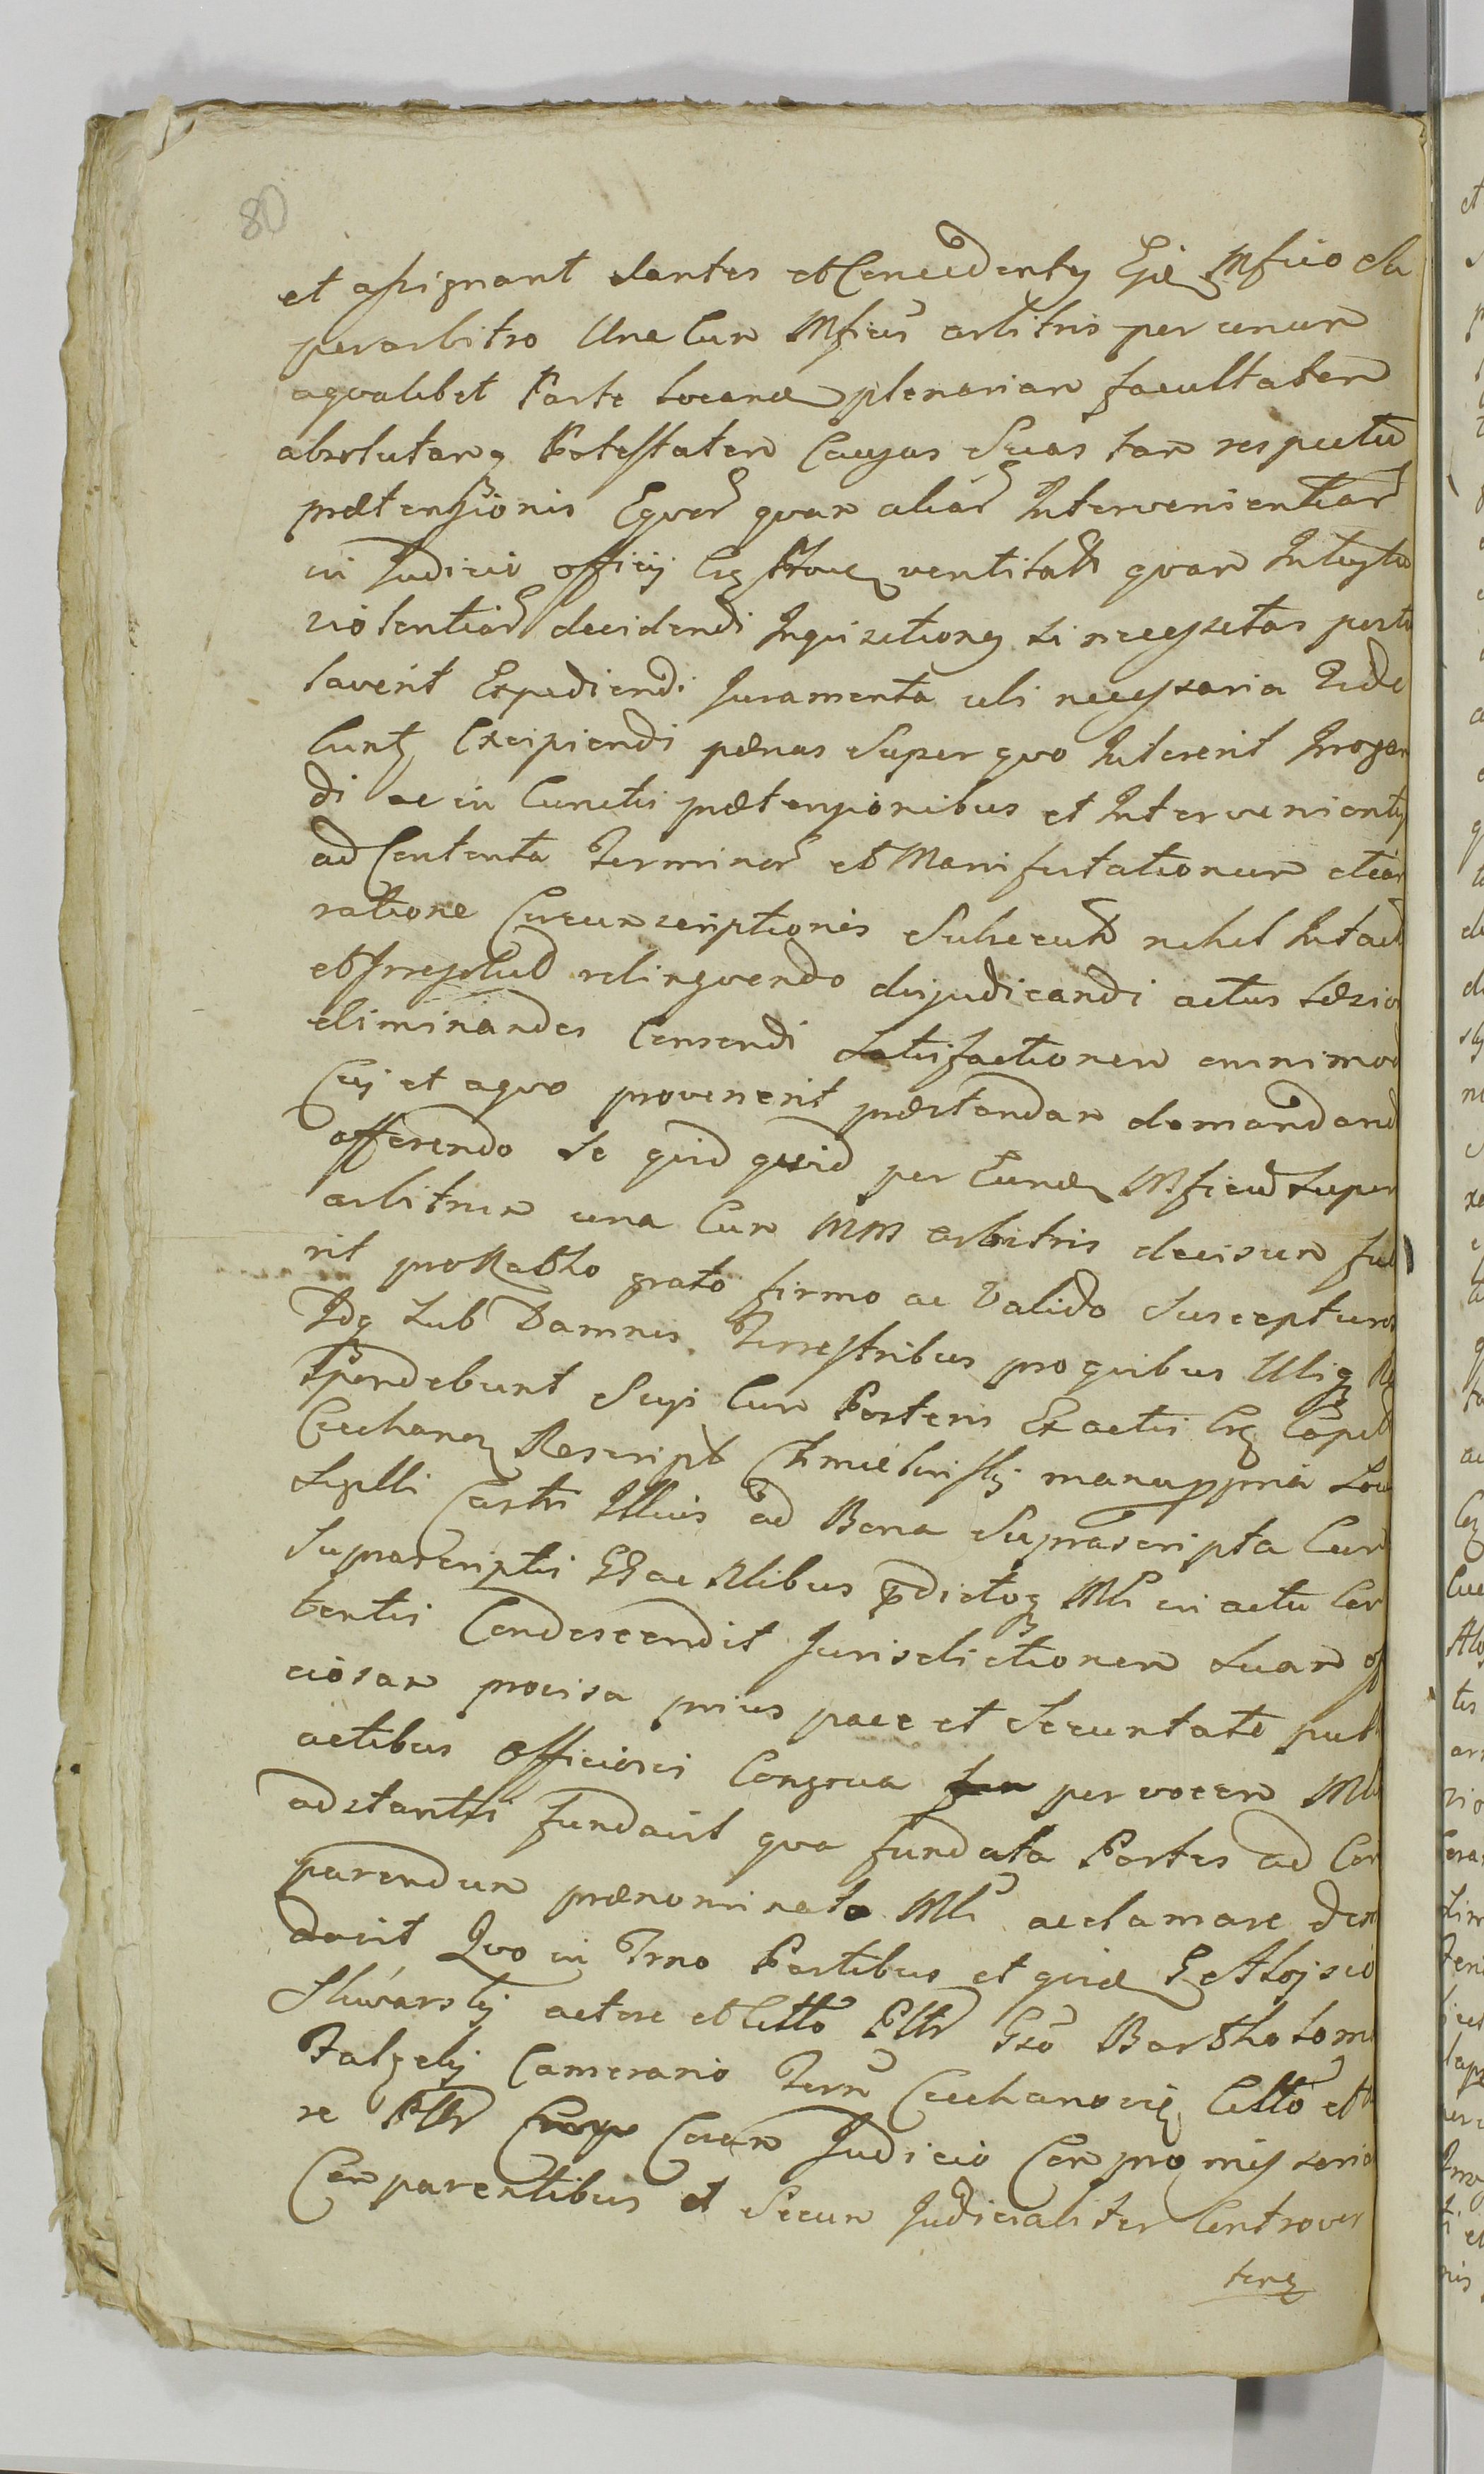 80
et assignant dantes et Concedentes Eidē Mfico Su
perarbitro Una Cum Mficis arbitris per unum
aqvalibet Parte Locandē plenariam facultatem
absolutamq Potestatem Causas Suas tam respectu
prætensionis Eqvor qvam aliar Intervenientiar
in Judicio officij Crg ventitat qvam Intuytu
violentiar decidendi Inquisitiones Si necessitas postu
laverit Expediendi Juramenta ubi necessaria Vide
buntr Excipiendi pænas Super qvo Intererit Irrogan
di ac in Cunctis prætensionibus et Intervenients
ad Contenta Terminor et Manifestationum etiam
ratione Circumscriptionis Subsecut nihil Intact
et Irresolut relinqvendo dijudicandi actus Læsivos
eliminandos Censendi Satisfactionem omnimod
Cuj et aqvo provenerit præstandam demandand
offerendo Se qvid qvid per Eundē Mficum Super
arbitrum una Cum MM arbitris decisum fue
rit pro Ratho grato firmo ac Valido Suscepturos
Idq Sub Damnis Terrestribus pro quibus Utiq Re
spondebunt Suji Cum Posteris Ex actis Crg Capit
Ciechanoy Rescript Chmielinskij manu ppria Loco
Sigilli Castri Illius ad Bona Suprascripta Cum
Suprascriptis GG ac Nlibus pdictoq Mli in actu Con
tentis Condescendit Jurisdictionem Suam off
ciosam procisa prius pace et Securitate publ
actibus officiosis Congrua per vocem Mli
adstantis fundavit qva fundata Partes ad Com
parendum prænominato Mli acclamare den
davit Qvo in Trno Partibus et quidē G Alojsio
Sliwarskij actore et Citto Pltr Gso Bartholome
Zalęskij Camerario Terræ Ciechanovię Citto et
re Pltr Coram Judicio Compromissario
Comparentibus et Secum Judicialiter Controver
tentę